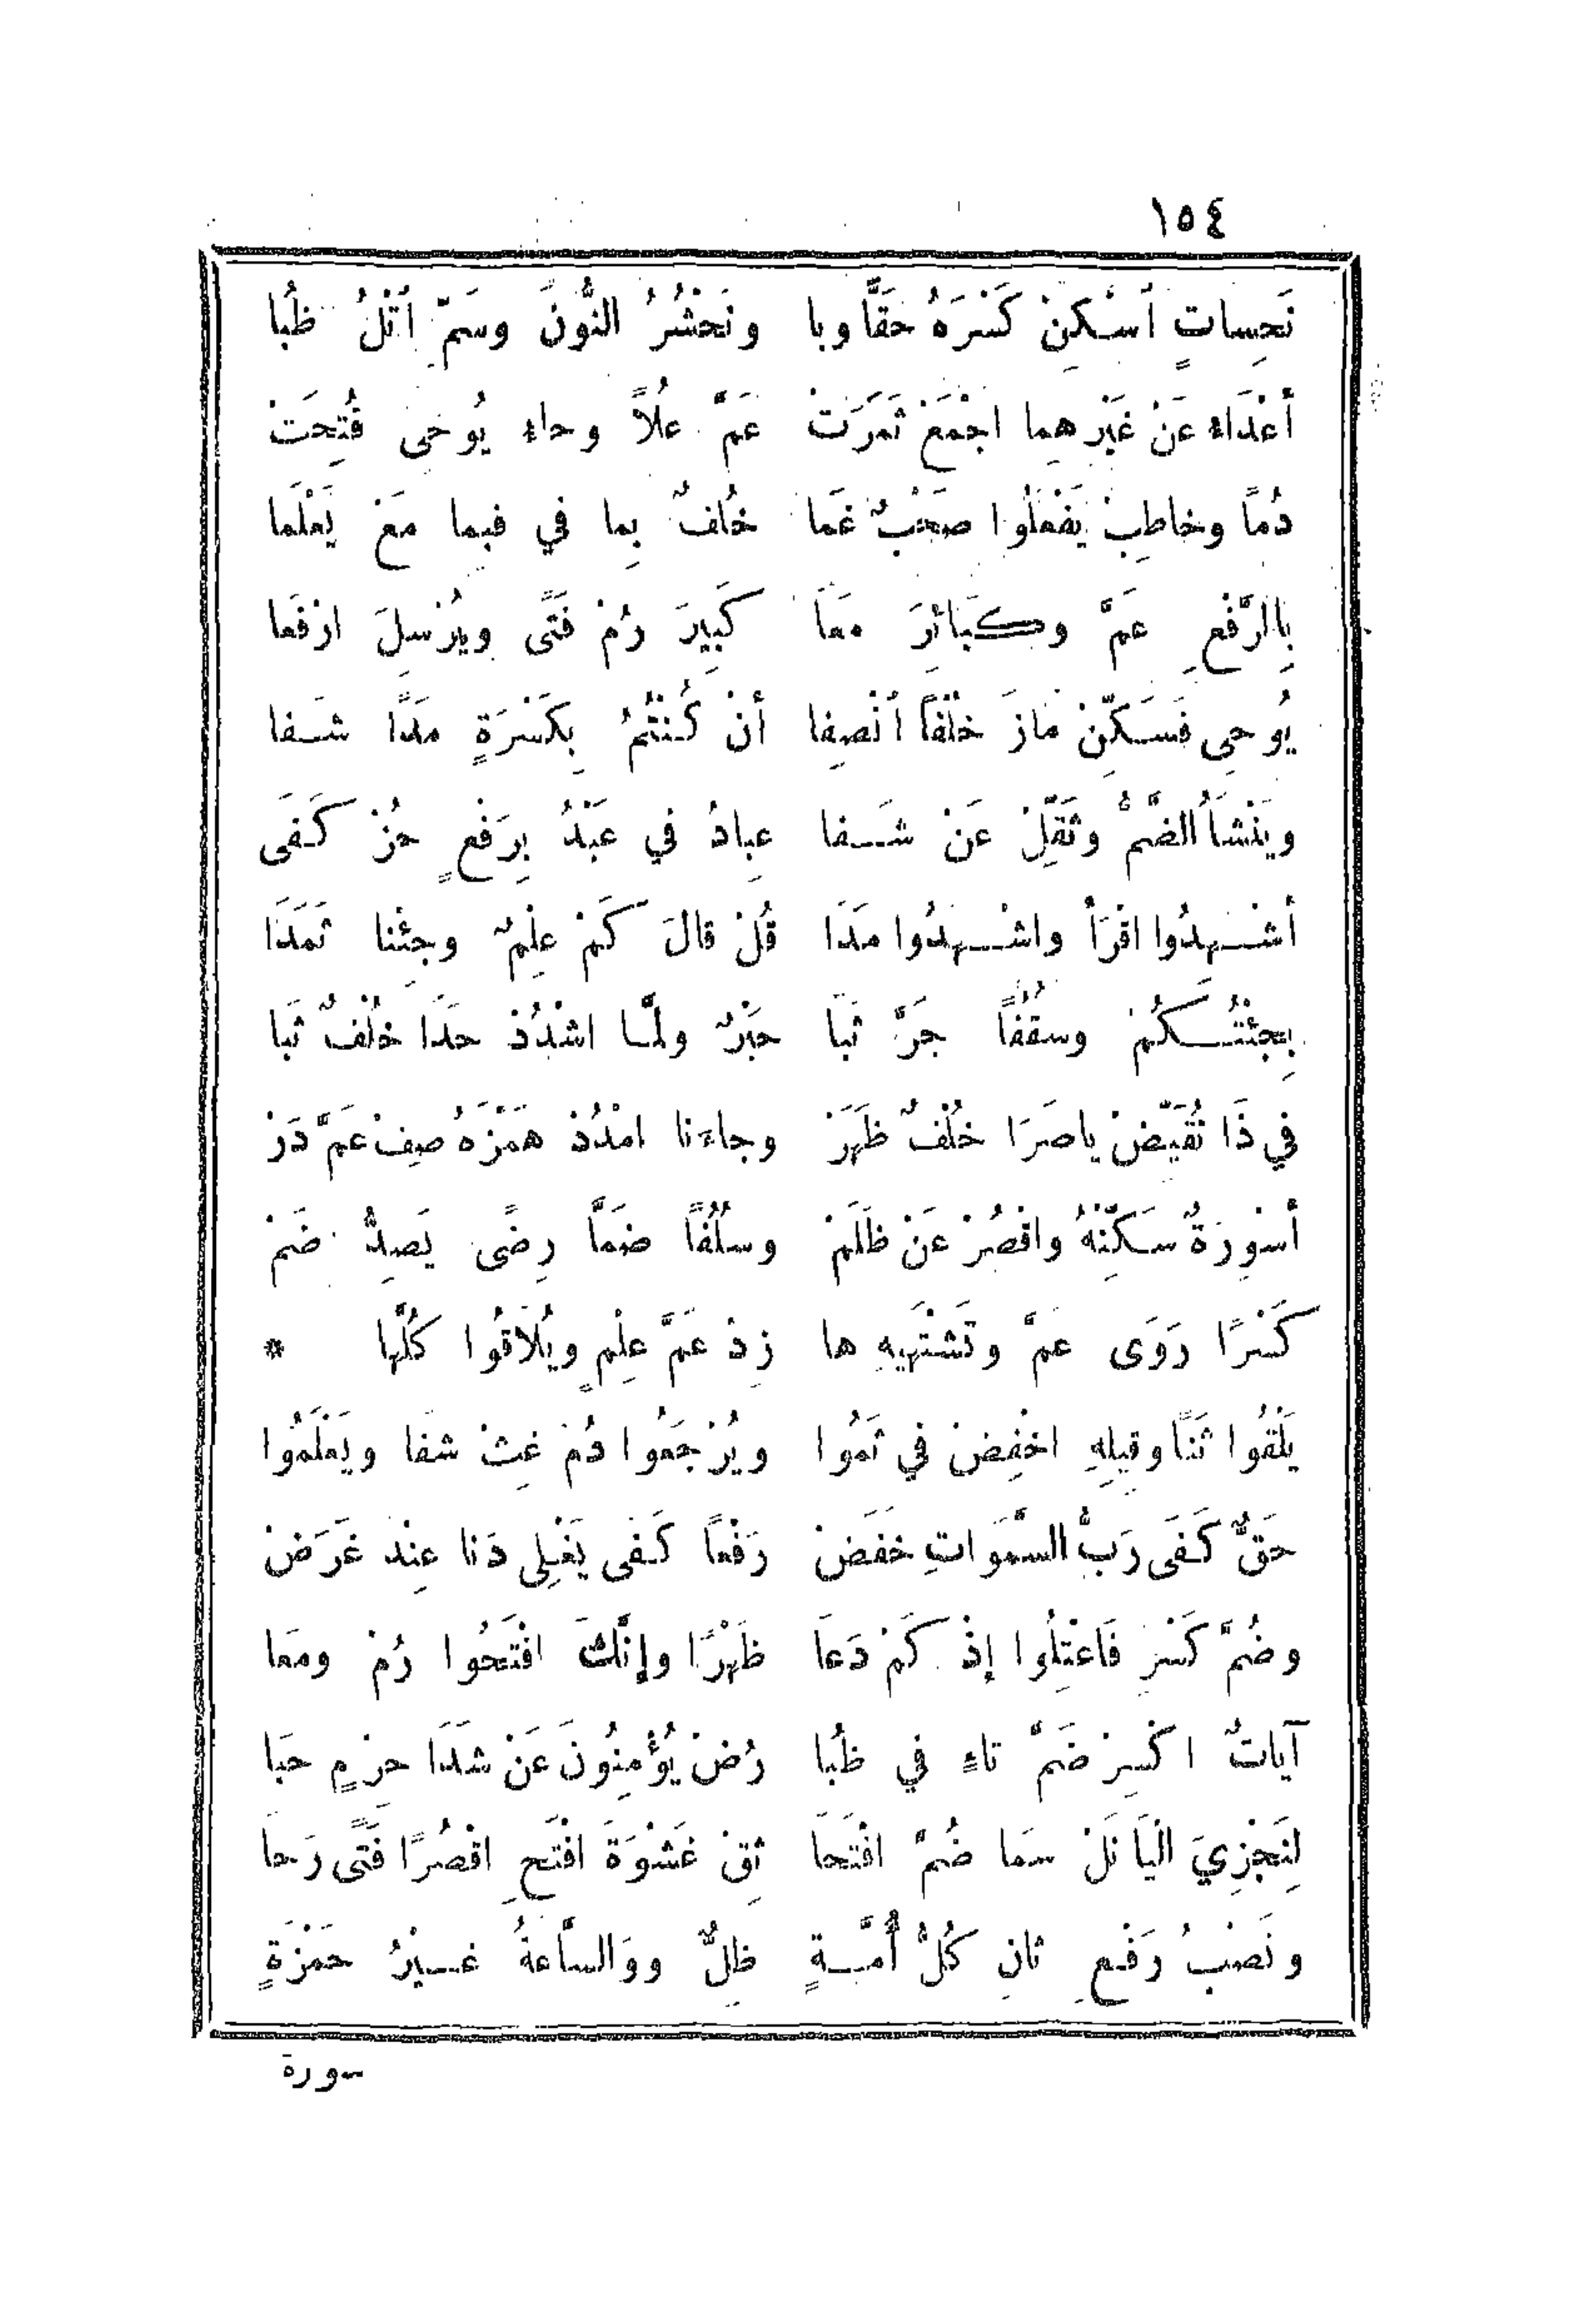 ١٥٤
نَحِسَاتٍ أَسْكِنْ كَسْرَهُ حَقًّا وبا ونَحْشُرُ النُّونَ وسَمِّ أتْلُ ظُبا
أعْدَاءُ عَنْ غَيْرِهِما اجْمَعْ ثَمَرَتْ عَمَّ عُلاً وحاءِ يُوحَى فُتِحَتْ
دُماً وخاطِبْ يَفْعَلُوا صَحْبٌ غَما خُلفٌ بِما في فبِما مَعْ يَعْلَما
بِالرَّفْعِ عَمَّ وكَبَائِرَ مَعَا كَبِيرَ رُمْ فَتًى ويُرْسِلَ ارْفَعا
يُوحِى فَسَكِّنْ مَازَ خُلْفاً أنْصِفا أنْ كُنْتُمُ بِكَسْرَةٍ مَدًا شَفا
ويَنْشَأُ الضَّمُّ وثَقِّلْ عَنْ شَفا عِبادُ في عَبْدُ بِرَفْعٍ حُزْ كَفَى
أشْهِدُوا اقْرَأْ وأشْهِدُوا مَدَا قُلْ قالَ كَمْ عِلْمٌ وجِئْنا ثَمَدَا
بِجِئْتُكُمْ وسُقُفًا جَرَّ ثَبَا حَبْرٌ ولَمَّا اشْدُدْ حَدَا خُلْفٌ نَبا
في ذَا نُقَيِّضْ ياصَرَا خُلْفٌ ظَهَرْ وجاءَنا امْدُدْ هَمْزَهُ صِفْ عَمَّ دَرْ
أسْوِرَةٌ سَكِّنْهُ واقْصُرْ عَنْ ظَلَمْ وسُلُفًا ضَمَّا رِضًى يَصِدُّ ضَمْ
كَسْرًا رَوَى عَمَّ وتَشْتَهِيهِ ها زِدْ عَمَّ عِلْمٍ ويُلَاقُوا كُلَّها *
يَلْقَوْا ثَنًا وقِيلِهِ اخْفِضْ في نَمُوا ويُرْجَعُوا دُمْ غِثْ شَفا ويَعْلَمُوا
حَقٌّ كَفَى رَبُّ السَّمَوَاتِ خَفَضْ رَفْعًا كَفَى يَغْلِى دَنا عِنْدَ غَرَضْ
وضُمَّ كَسْرِ فَاعْتِلُوا إذْ كَمْ دَعَا ظَهْرًا وإنَّكَ افْتَحُوا رُمْ ومَعا
آياتٌ اكْسِرْ ضَمَّ تاءِ في ظُبا رُضْ يُؤْمِنُونَ عَنْ شَدَا حِرْمٍ حَبَا
لِنَجْزِيَ الْيَا نَلْ سَمَا ضُمَّ افْتَحَا ثِقْ غَشْوَةً افْتَحِ اقْصُرًا فَتًى رَحا
ونَصْبُ رَفْعِ ثانِ كُلُّ أُمَّةٍ ظِلٌّ ووَالسَّاعَةُ غَيْرُ حَمْزَةٍ
سورة